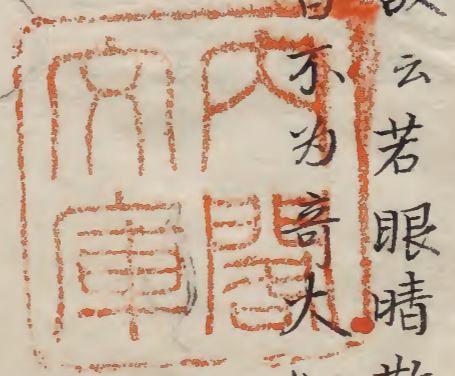 云若眼睛
不为竒大
内閣
文庫